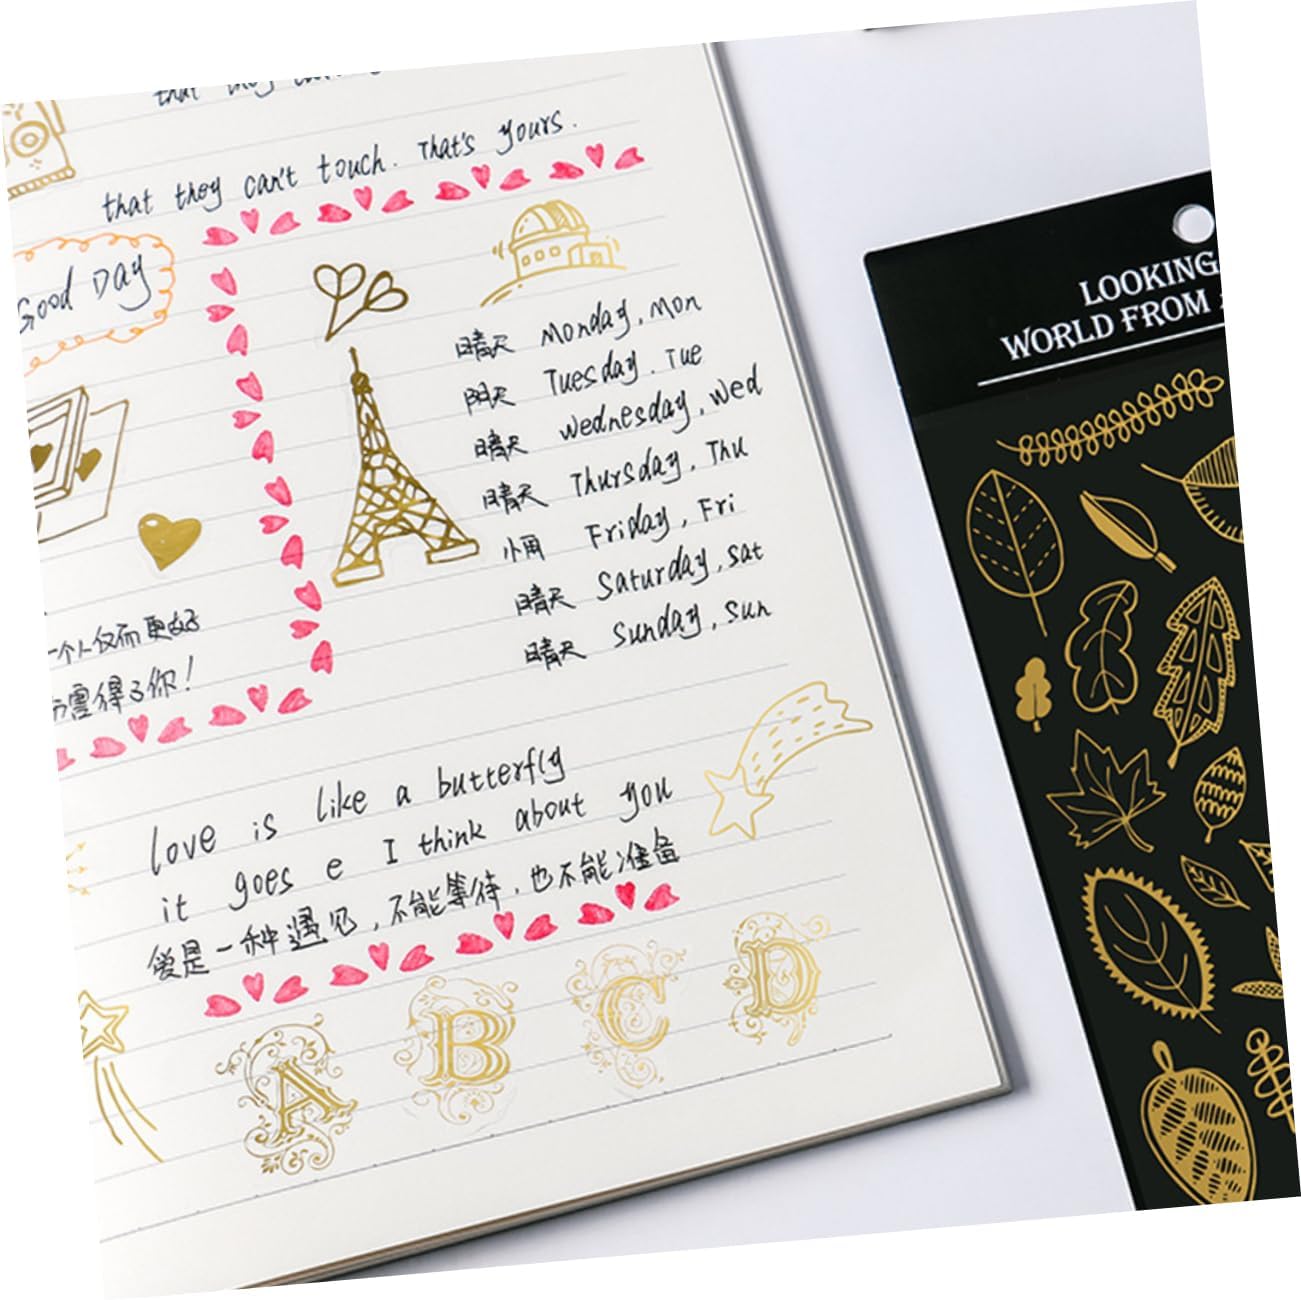 that they
that they can't touch. That's yours.
Good Day
晴天 Monday, Mon
阴天 Tuesday. Tue
晴天 Wednesday, Wed
晴天 Thursday, Thu
小雨 Friday, Fri
晴天 Saturday, Sat
晴天 Sunday, Sun
一个人仅而更好
而需得了你！
love is like a butterfly
it goes e I think about you
爱是一种遇见，不能等待，也不能准备
A B C D
LOOKING
WORLD FROM